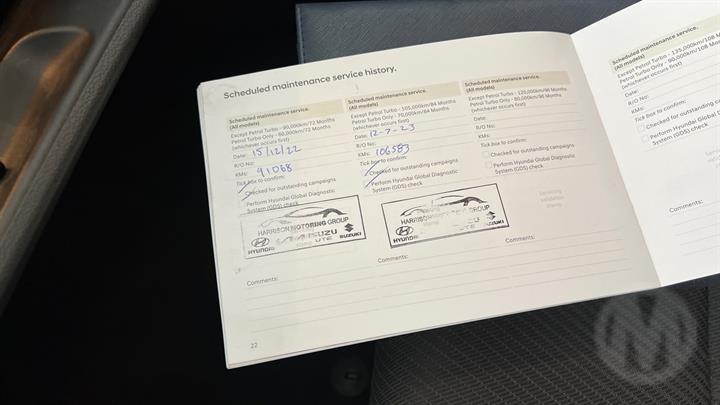 Scheduled maintenance service history.
Scheduled maintenance service.
(All models)
Except Petrol Turbo - 90,000km/72 Months
Petrol Turbo Only - 60,000km/72 Months
(whichever occurs first)
Date: 15/12/22
R/O No:
KMs: 91068
Tick box to confirm:
Checked for outstanding campaigns
Perform Hyundai Global Diagnostic
System (GDS) check
HARRISON MOTORING GROUP
HYUNDAI
ISUZU
UTE
SUZUKI
Comments:
Scheduled maintenance service.
(All models)
Except Petrol Turbo - 105,000km/84 Months
Petrol Turbo Only - 70,000km/84 Months
(whichever occurs first)
Date: 12-7-23
R/O No:
KMs: 106583
Tick box to confirm:
Checked for outstanding campaigns
Perform Hyundai Global Diagnostic
System (GDS) check
HARRISON
GROUP
HYUNDAI
UTE
SUZUKI
Comments:
Scheduled maintenance service.
(All models)
Except Petrol Turbo - 120,000km/96 Months
Petrol Turbo Only - 80,000km/96 Months
(whichever occurs first)
Date:
R/O No:
KMs:
Tick box to confirm:
Checked for outstanding campaigns
Perform Hyundai Global Diagnostic
System (GDS) check
Servicing
validation
stamp
Comments:
22
Scheduled maintenance service.
(All models)
Except Petrol Turbo - 135,000km/108 M
Petrol Turbo Only - 90,000km/108 M
(whichever occurs first)
Date:
R/O No:
KMs:
Tick box to confirm:
Checked for outstanding
Perform Hyundai Global D
System (GDS) check
Comments:
M